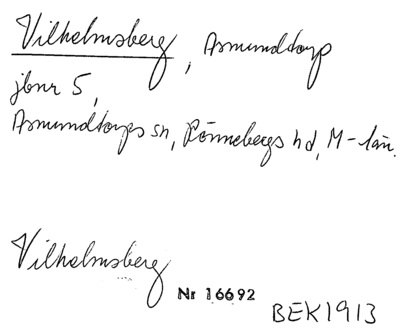 Vilhelmsberg, Asmundtorp
jbnr 5,
Asmundtorps sn, Rönnebergs hd, M-län.
Vilhelmsberg
Nr 16692
BEK1913